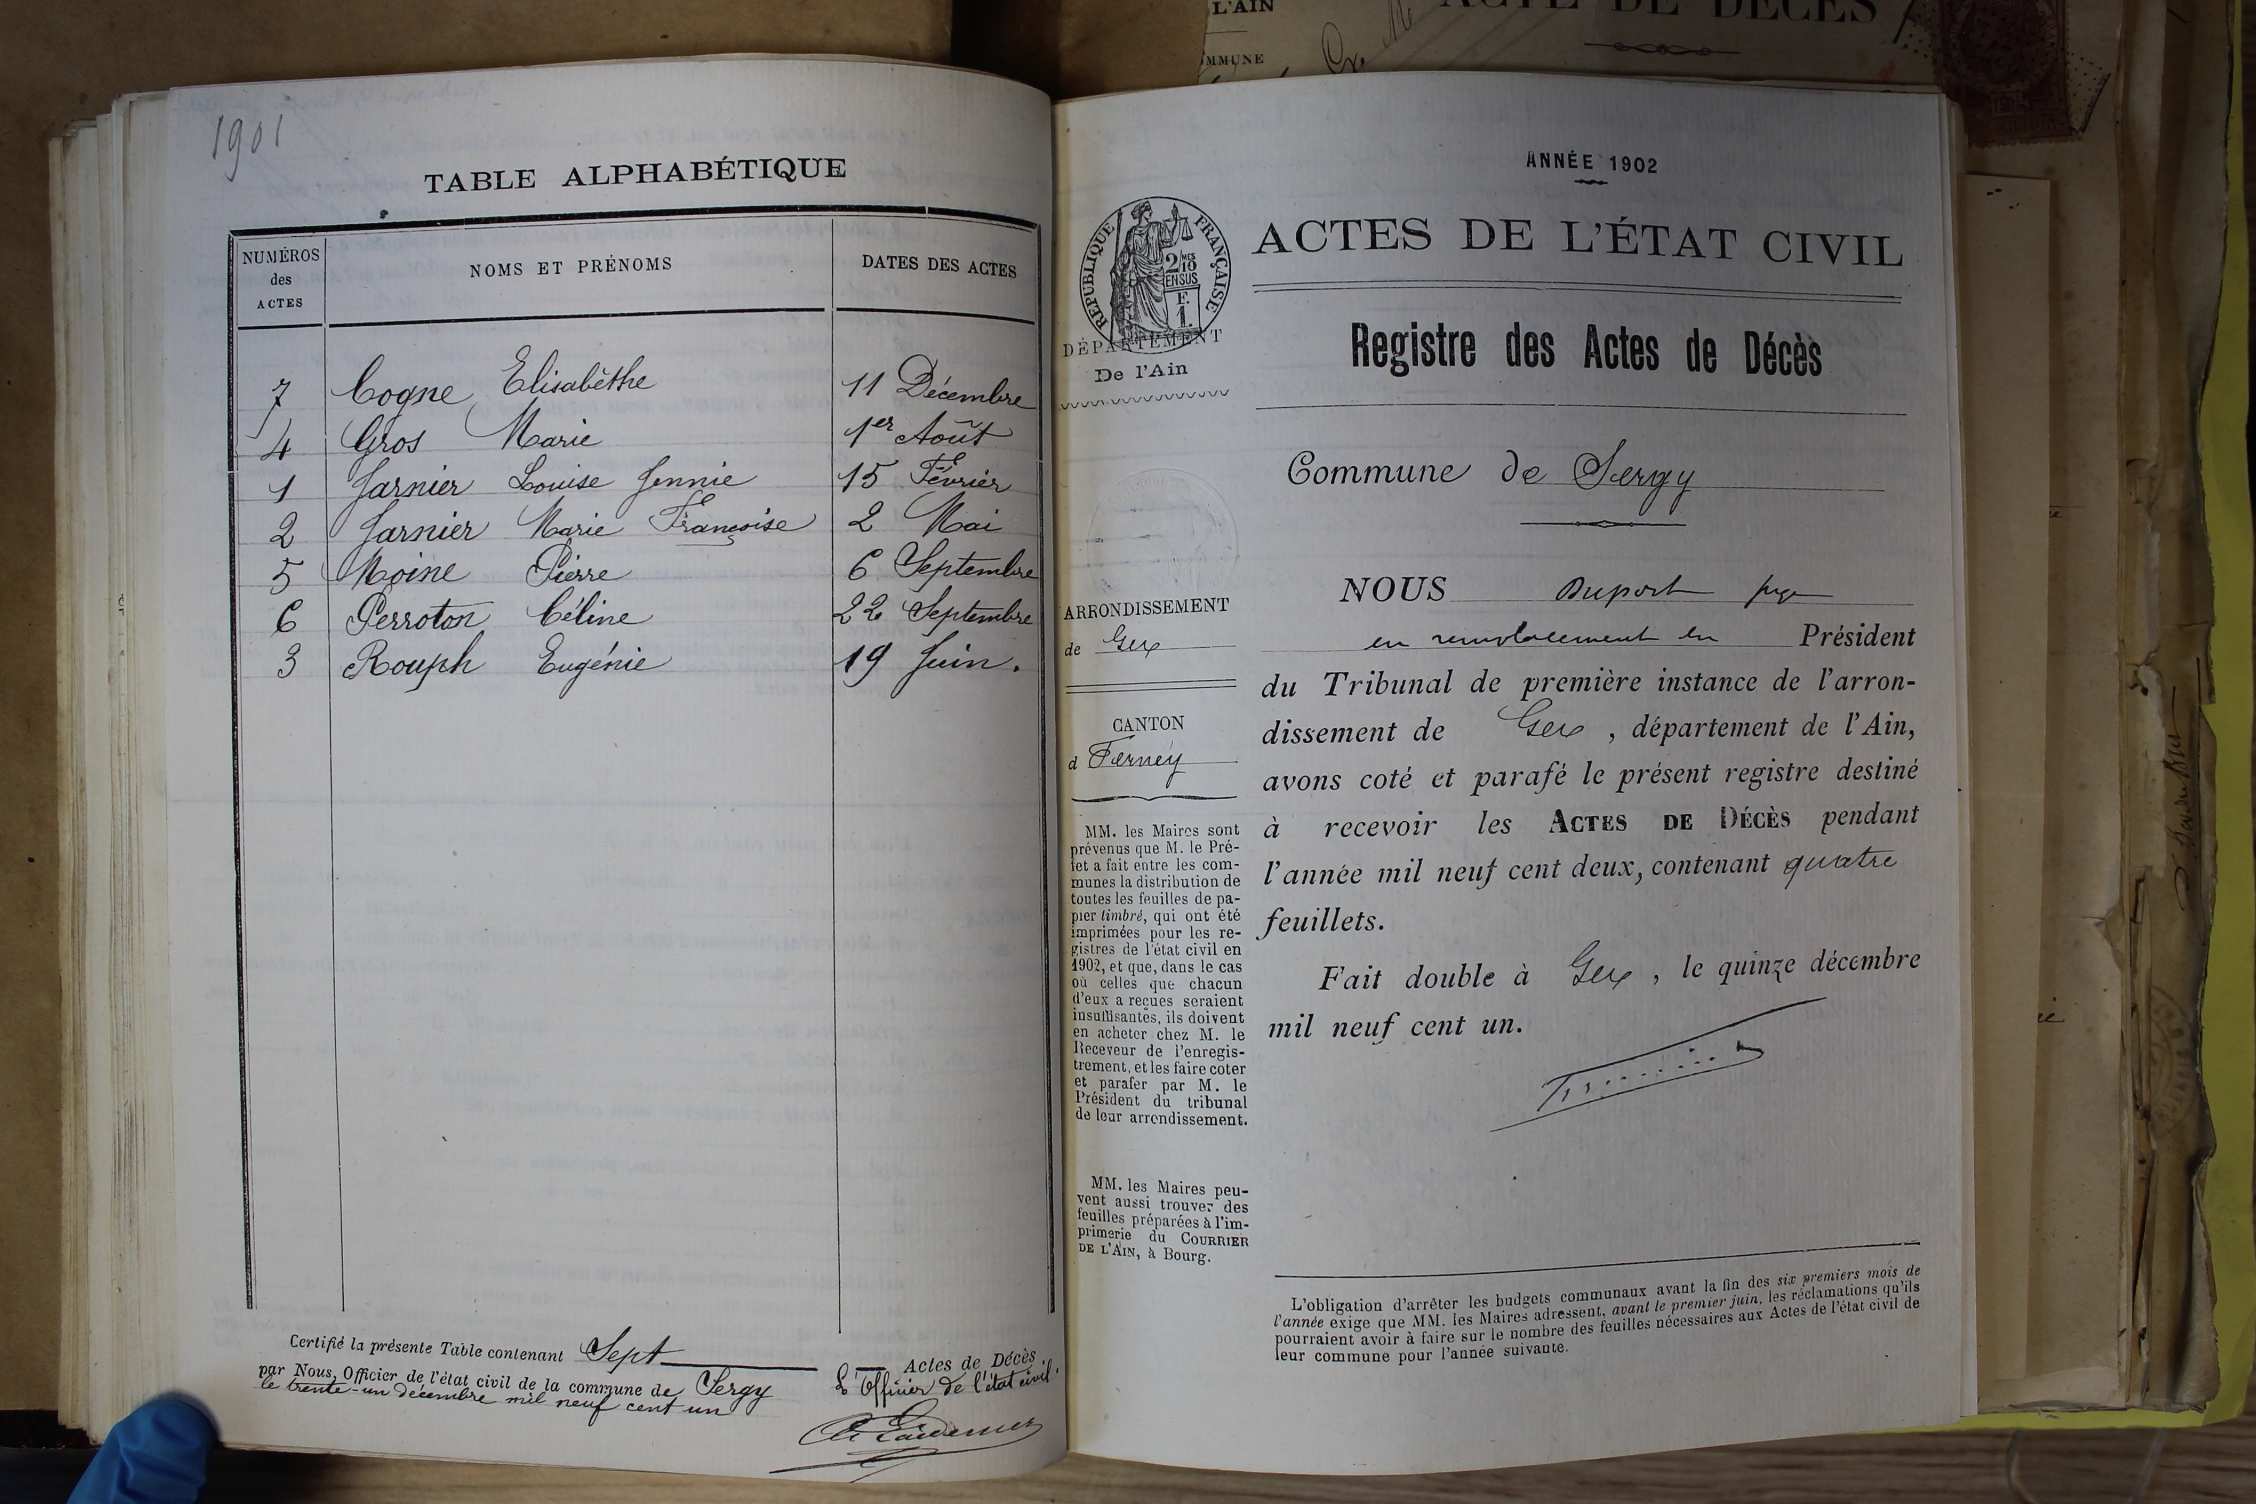 L'AIN
ACTE DE DÉCÈS
COMMUNE
1901
TABLE ALPHABÉTIQUE
NUMÉROS des ACTES
NOMS ET PRÉNOMS
DATES DES ACTES
7 Cogne Elisabèthe 11 Décembre
4 Gros Marie 1er Août
1 Jarnier Louise Jennie 15 Février
2 Jarnier Marie Françoise 2 Mai
5 Moine Pierre 6 Septembre
6 Perroton Céline 22 Septembre
3 Rouph Eugénie 19 Juin.
Certifié la présente Table contenant Sept Actes de Décès
par Nous, Officier de l'état civil de la commune de Sergy
le trente-un décembre mil neuf cent un
L'officier de l'état civil.
ANNÉE 1902
RÉPUBLIQUE FRANÇAISE
2/10 MES
EN SUS
F.
1.
DÉPARTEMENT
De l'Ain
ACTES DE L'ÉTAT CIVIL
Registre des Actes de Décès
Commune de Sergy
ARRONDISSEMENT
de Gex
CANTON
d Ferney
MM. les Maires sont
prévenus que M. le Pré-
fet a fait entre les com-
munes la distribution de
toutes les feuilles de pa-
pier timbré, qui ont été
imprimées pour les re-
gistres de l'état civil en
1902, et que, dans le cas
où celles que chacun
d'eux a reçues seraient
insuffisantes, ils doivent
en acheter chez M. le
Receveur de l'enregis-
trement, et les faire coter
et parafer par M. le
Président du tribunal
de leur arrondissement.
MM. les Maires peu-
vent aussi trouver des
feuilles préparées à l'im-
primerie du COURRIER
DE L'AIN, à Bourg.
NOUS Duport juge
en remplacement du Président
du Tribunal de première instance de l'arron-
dissement de Gex, département de l'Ain,
avons coté et parafé le présent registre destiné
à recevoir les ACTES DE DÉCÈS pendant
l'année mil neuf cent deux, contenant quatre
feuillets.
Fait double à Gex, le quinze décembre
mil neuf cent un.
L'obligation d'arrêter les budgets communaux avant la fin des six premiers mois de
l'année exige que MM. les Maires adressent, avant le premier juin, les réclamations qu'ils
pourraient avoir à faire sur le nombre des feuilles nécessaires aux Actes de l'état civil de
leur commune pour l'année suivante.